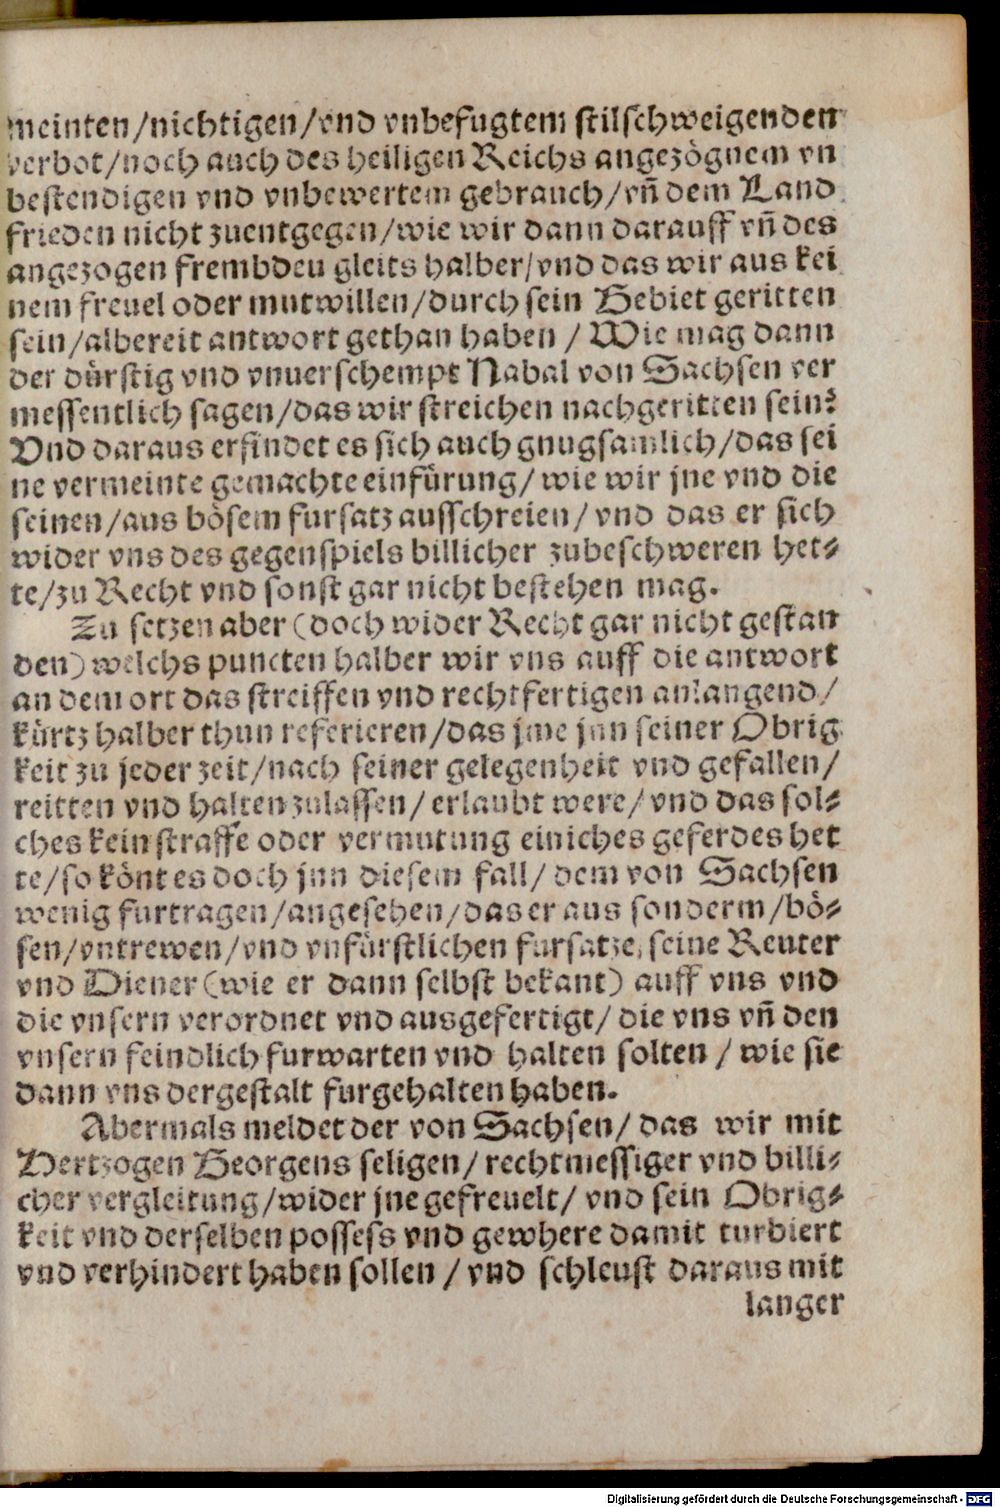 meinten/nichtigen/vnd vnbefugtem stilschweigenden
verbot/noch auch des heiligen Reichs angezögnem vn
bestendigen vnd vnbewertem gebrauch/vñ dem Land
frieden nicht zuentgegen/wie wir dann darauff vñ des
angezogen frembdeu gleits halber/vnd das wir aus kei
nem freuel oder mutwillen/durch sein Gebiet geritten
sein/albereit antwort gethan haben / Wie mag dann
der dürstig vnd vnuerschempt Nabal von Sachsen ver
messentlich sagen/das wir streichen nachgeritten sein?
Vnd daraus erfindet es sich auch gnugsamlich/das sei
ne vermeinte gemachte einfürung/ wie wir jne vnd die
seinen/aus bösem fursatz ausschreien/ vnd das er sich
wider vns des gegenspiels billicher zubeschweren het⸗
te/zu Recht vnd sonst gar nicht bestehen mag.
Zu setzen aber (doch wider Recht gar nicht gestan
den) welchs puncten halber wir vns auff die antwort
an dem ort das streiffen vnd rechtfertigen anlangend/
kürtz halber thun referieren/das jme jnn seiner Obrig
keit zu jeder zeit/nach seiner gelegenheit vnd gefallen/
reitten vnd halten zulassen/ erlaubt were/ vnd das sol⸗
ches kein straffe oder vermutung einiches geferdes het
te/so könt es doch jnn diesem fall/ dem von Sachsen
wenig furtragen/angesehen/das er aus sonderm/bö⸗
sen/vntrewen/vnd vnfürstlichen fursatze, seine Reuter
vnd Diener (wie er dann selbst bekant) auff vns vnd
die vnsern verordnet vnd ausgefertigt/ die vns vñ den
vnsern feindlich furwarten vnd halten solten / wie sie
dann vns dergestalt furgehalten haben.
Abermals meldet der von Sachsen/ das wir mit
Hertzogen Georgens seligen/ rechtmessiger vnd billi⸗
cher vergleitung/wider jne gefreuelt/ vnd sein Obrig⸗
keit vnd derselben possess vnd gewhere damit turbiert
vnd verhindert haben sollen / vnd schleust daraus mit
langer
Digitalisierung gefördert durch die Deutsche Forschungsgemeinschaft - DFG